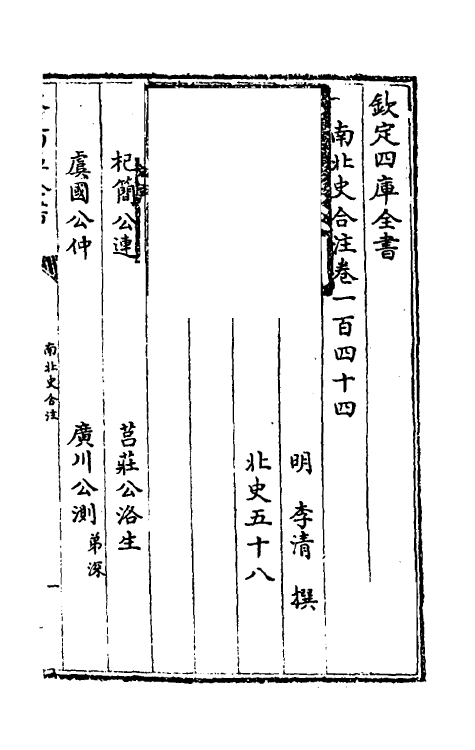 欽定四庫全書
南北史合注卷一百四十四
明 李清 撰
北史五十八
杞簡公連 莒莊公洛生
虞國公仲 廣川公測 弟深
南北史合注
一